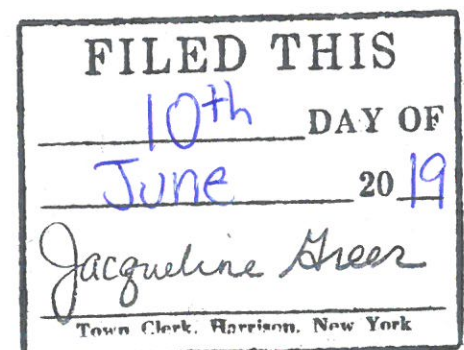 FILED THIS
10th DAY OF
June 20 19
Jacqueline Greer
Town Clerk, Harrison, New York